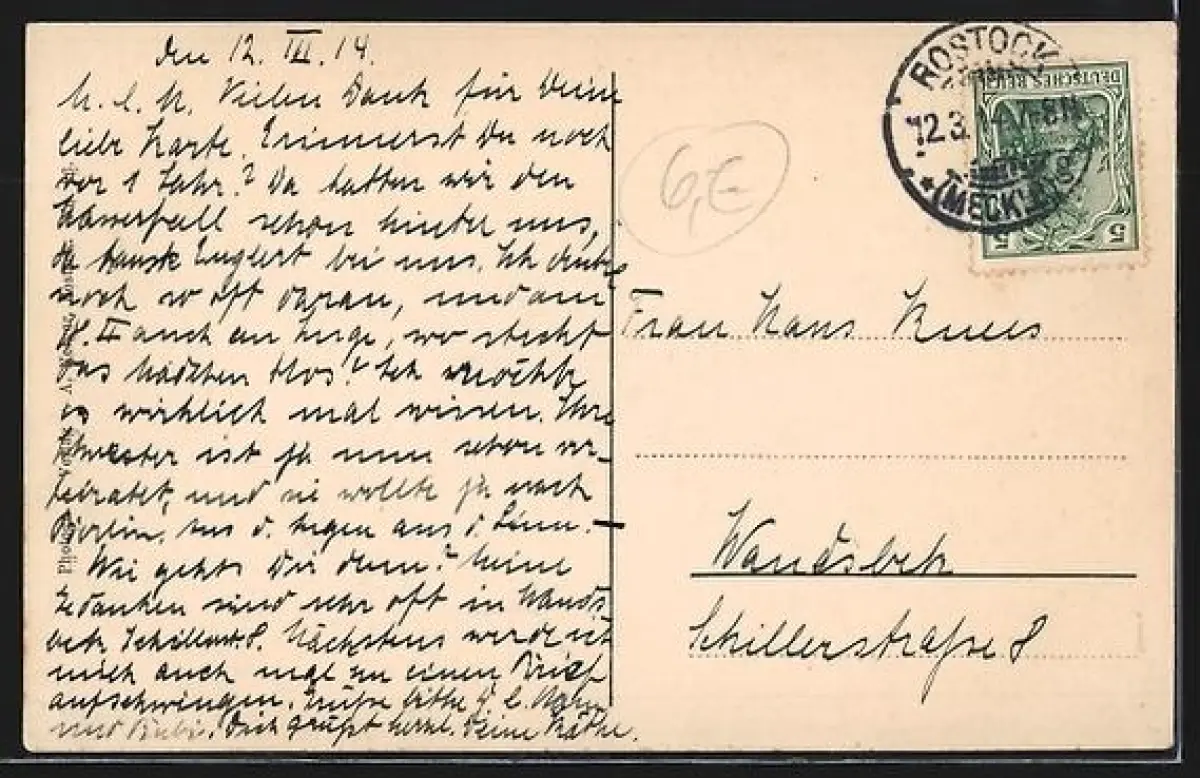 den 12. III. 14.
M. l. M. Vielen Dank für Deine
liebe Karte. Erinnerst Du noch
vor 1 Jahr? Da hatten wir den
schon hinter uns,
da bei uns. Ich denke
noch so oft daran, und am
8. II auch an Inge, wo steckt
das Mädchen blos? Ich möchte
es wirklich mal wissen. Ihre
Schwester ist ja nun schon ver-
heiratet, und sie wollte ja nach
Berlin. Aus d. Augen aus d. Sinn. —
Wie gehts Dir denn? Meine
Gedanken sind sehr oft in Wands-
bek, Schillerstr. 8. Nächstens werde ich
mich auch mal zu einem Brief
aufschwingen. Grüße bitte d. l.
und Bubi. Dich grüßt herzl. Deine Käthe.
6,€
ROSTOCK
12.3.14. 7-8N
(MECKLB)
DEUTSCHES REICH
5 5
Frau Hans
Wandsbek
Schillerstraße 8